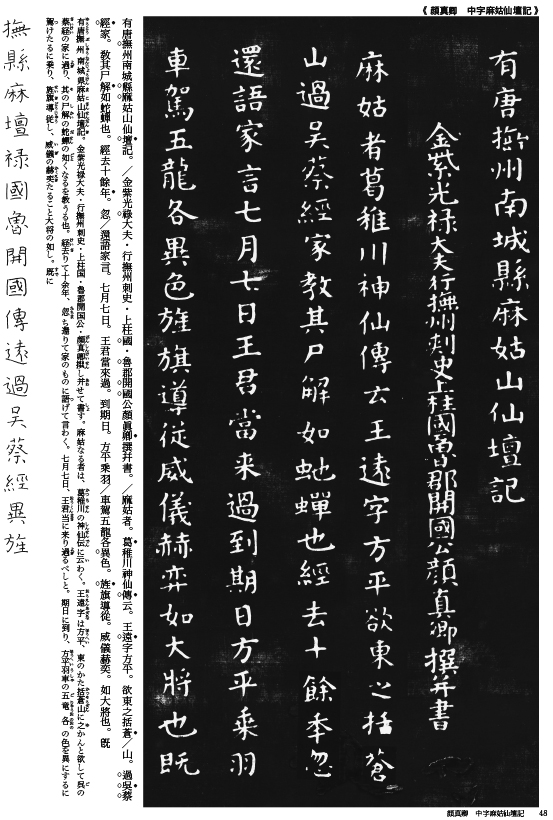 《 顔真卿　中字麻姑仙壇記 》
有唐撫州南城縣麻姑山仙壇記
金紫光祿大夫行撫州刺史上柱國魯郡開國公顏真卿撰并書
麻姑者葛稚川神仙傳云王遠字方平欲東之括蒼
山過吳蔡經家教其尸解如虵蟬也經去十餘年忽
還語家言七月七日王君當来過到期日方平乘羽
車駕五龍各異色旌旗導從威儀赫弈如大將也既
有唐撫州南城縣麻姑山仙壇記。／金紫光祿大夫・行撫州刺史・上柱國・魯郡開國公顏眞卿撰幷書。／麻姑者。葛稚川神仙傳云。王遠字方平。欲東之括蒼／山。過吳蔡
經家。敎其尸解如蛇蟬也。經去十餘年。忽／還語家言。七月七日。王君當來過。到期日。方平乘羽／車駕五龍各異色。旌旗導從。威儀赫奕。如大將也。旣
有唐撫州南城県麻姑山仙壇記。金紫光禄大夫・行撫州刺史・上柱国・魯郡開国公・顔真卿撰し并せて書す。麻姑なる者は、葛稚川の神仙伝に云わく。王遠字は方平、東のかた括蒼山に之かんと欲して呉の
蔡経の家に過り、其の尸解の蛇蟬の如くなるを教うる也。経去りて十余年、忽ち還りて家のものに語げて言わく。七月七日、王君当に来り過るべしと。期日に到り、方平羽車の五竜、各の色を異にするに
駕けたるに乗り、旌旗導従し、威儀の赫奕たること大将の如し。既に
撫縣麻壇祿國魯開國傳遠過吳蔡經異旌
顔真卿　中字麻姑仙壇記　48